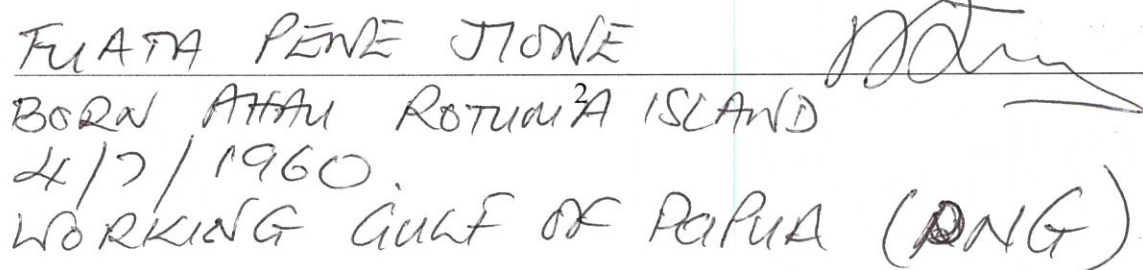 FUATA PENE JIONE
BORN AHAU ROTUMA ISLAND
2
4/7/1960.
WORKING GULF OF PAPUA (PNG)